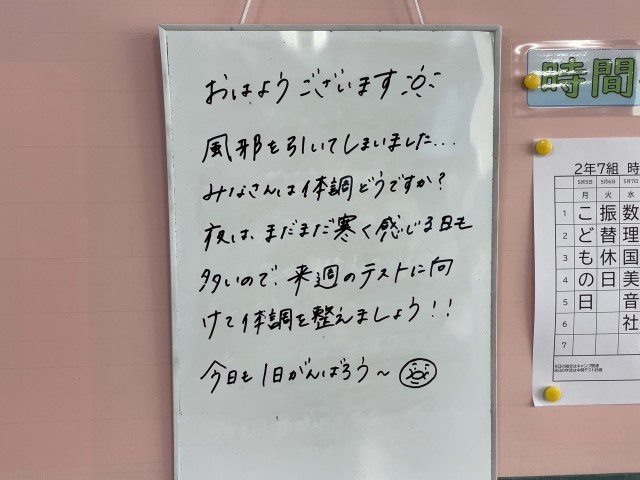 おはようございます
風邪を引いてしまいました...
みなさんは体調どうですか?
夜は、まだまだ寒く感じる日も
多いので、来週のテストに向
けて体調を整えましょう!!
今日も1日がんばろう〜
時間
2年7組 時
5月5日 5月6日 5月7日
月 火 水
1 こ 振 数
2 ど 替 理
3 も 休 国
4 の 日 美
5 日 音
6 社
7